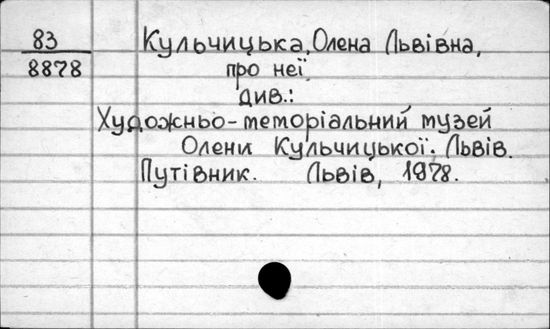 83
8878
Кульчицька, Олена Львівна,
про неї
див.:
Художньо-меморіальний музей
Олени Кульчицької. Львів.
Путівник. Львів, 1978.